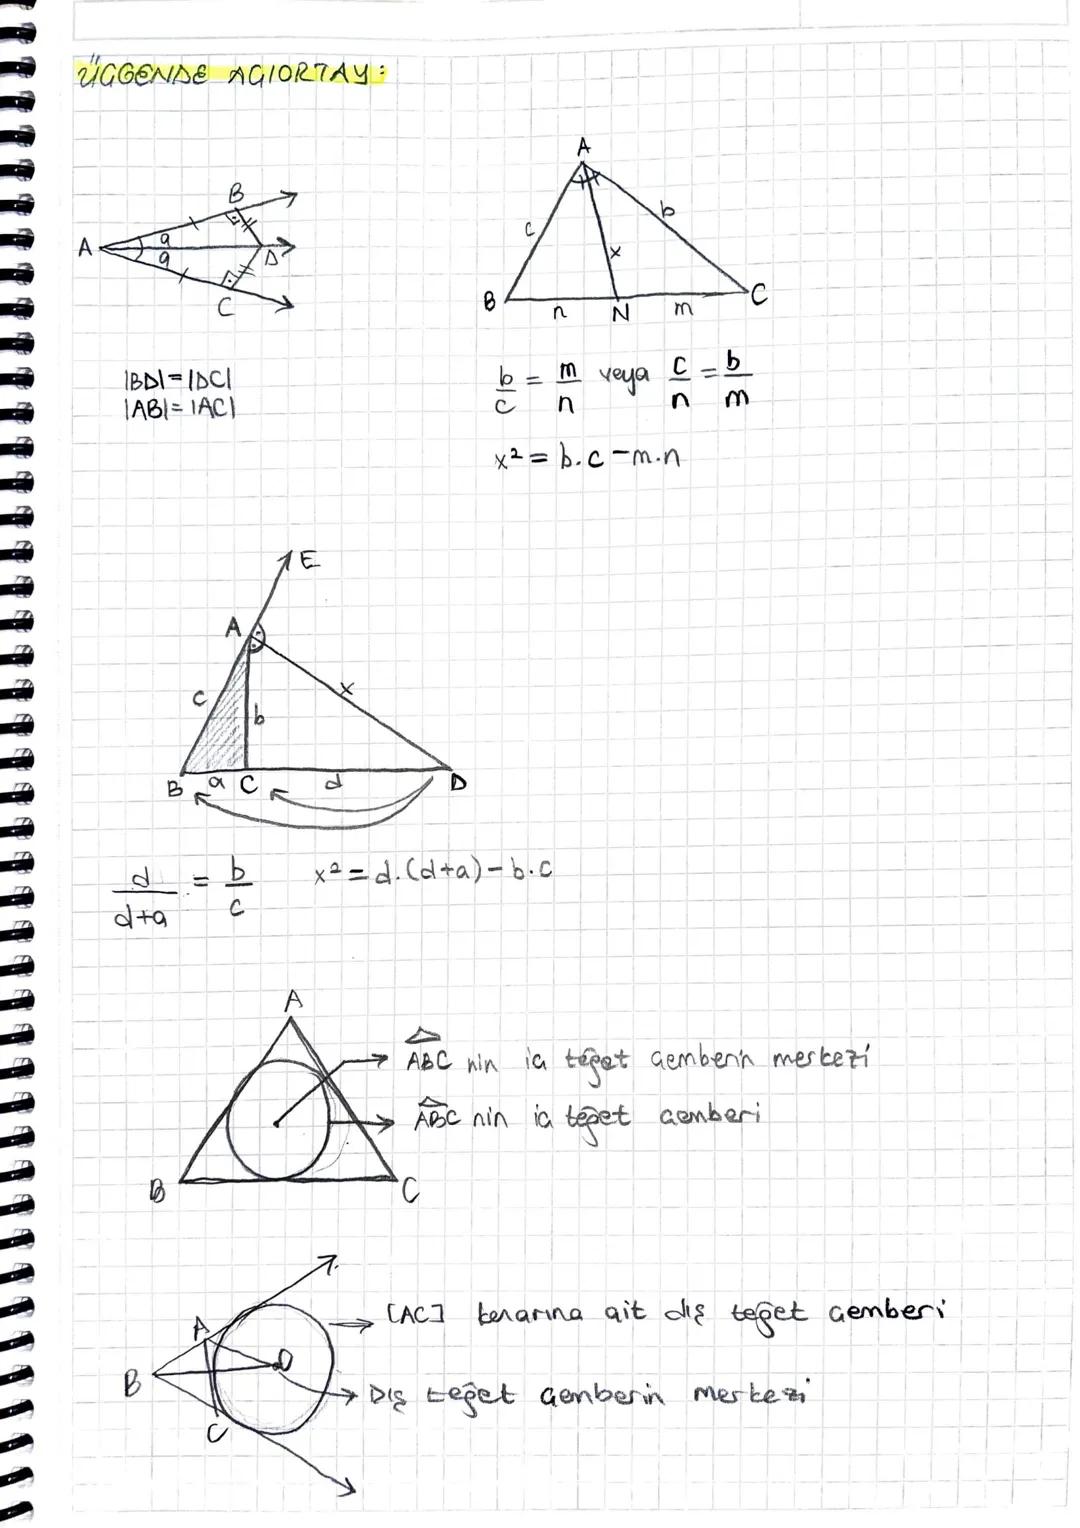 ÜÇGENDE AÇIORTAY:
A
B
a
a
D
C
A
c
b
x
B
n
N
m
C
|BD|=|DC|
|AB|=|AC|
b/c = m/n veya c/n = b/m
x² = b.c-m.n
E
A
c
b
x
B
a
C
d
D
d/d+a = b/c
x² = d.(d+a)-b.c
A
B
C
ABC nin iç teğet çemberin merkezi
ABC nin iç teğet çemberi
A
B
C
O
[AC] kenarına ait dış teğet çemberi
Dış teğet çemberin merkezi